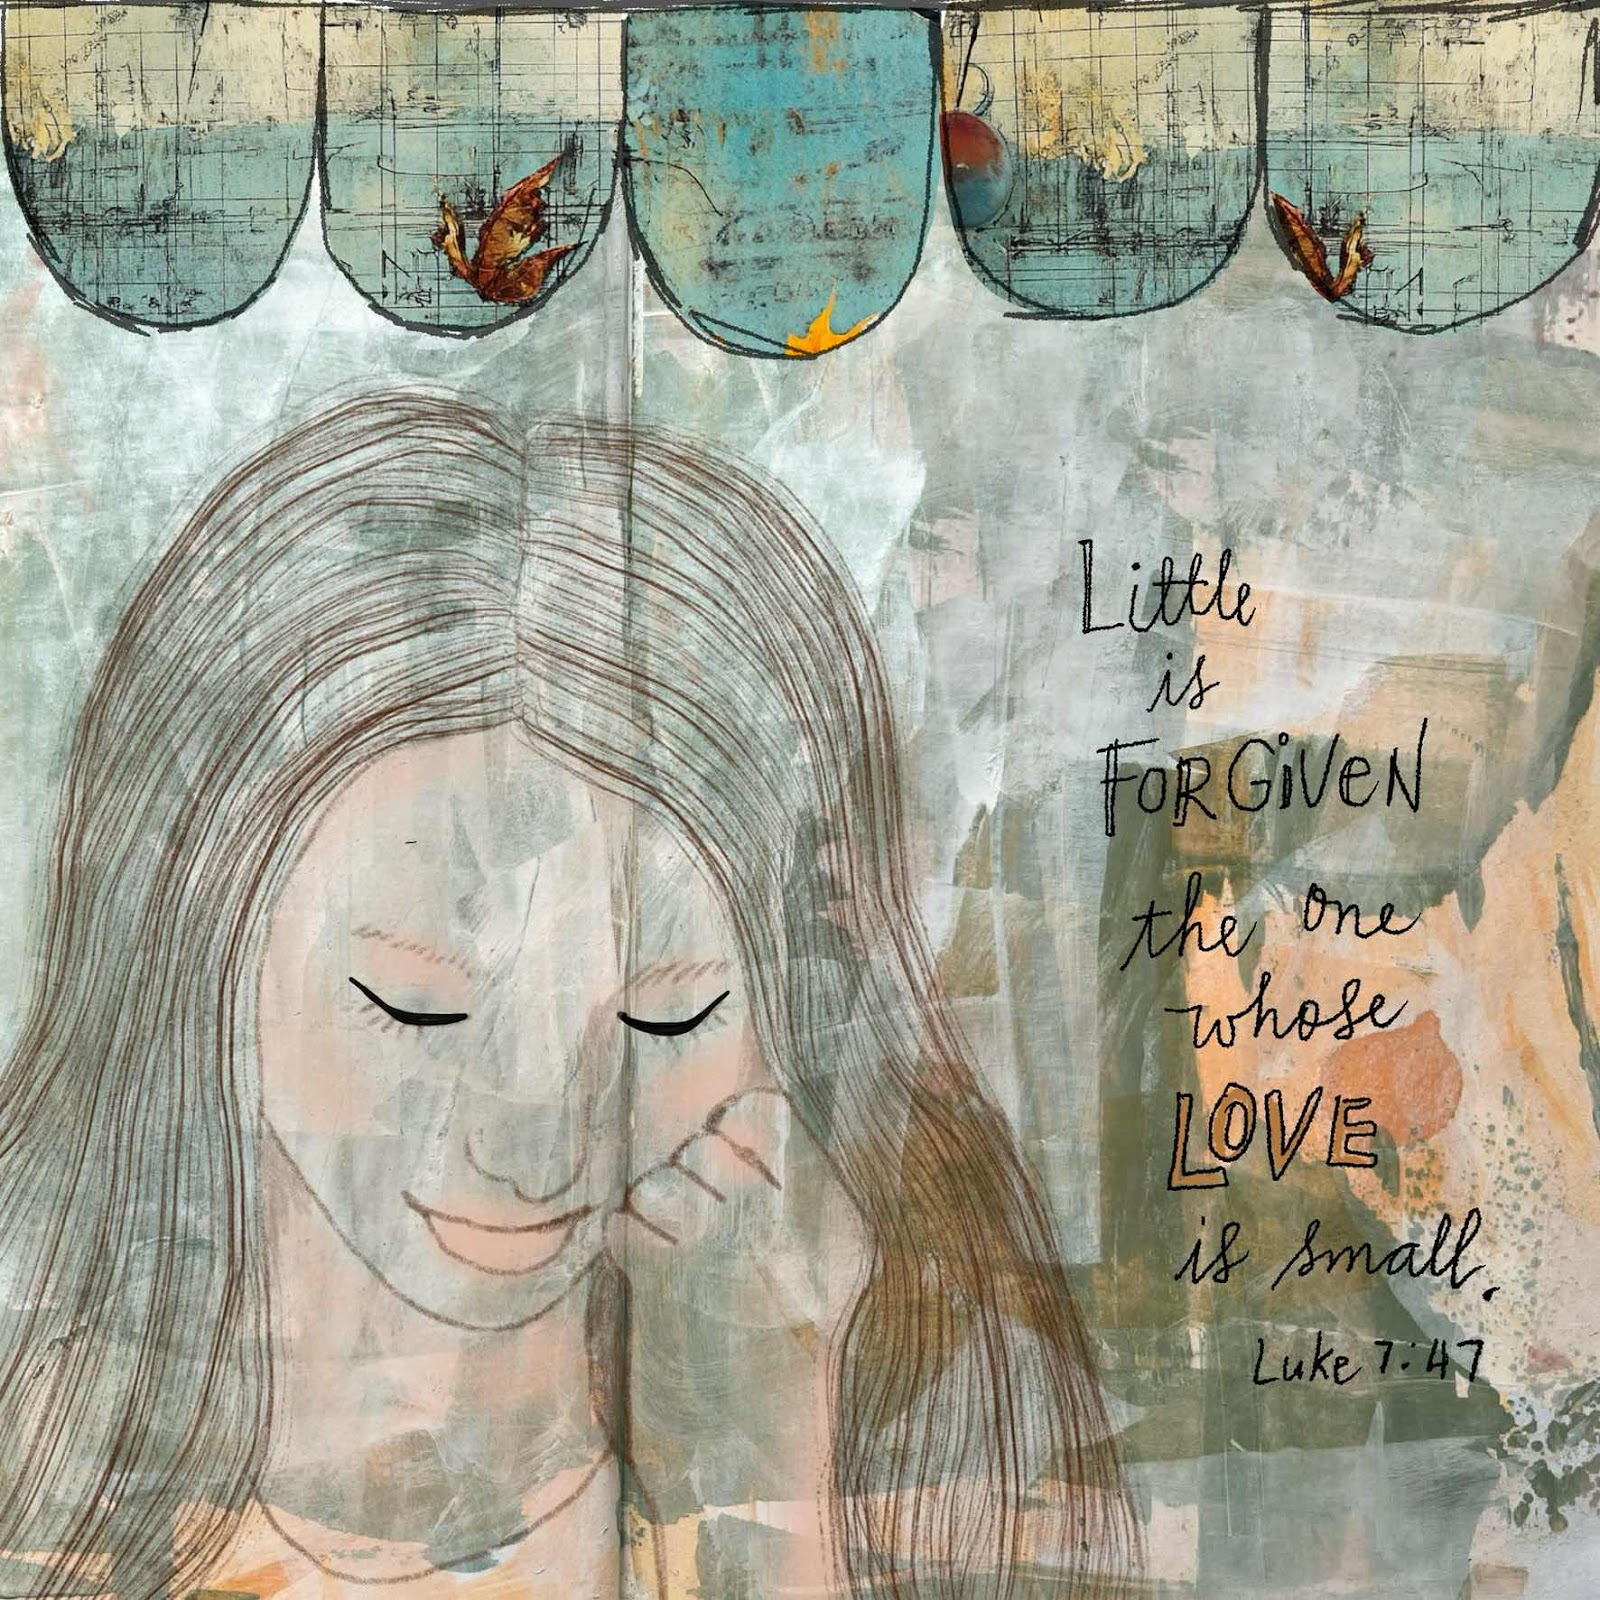 Little
is
FORGiVeN
the one
whose
LOVE
is small.
Luke 7:47